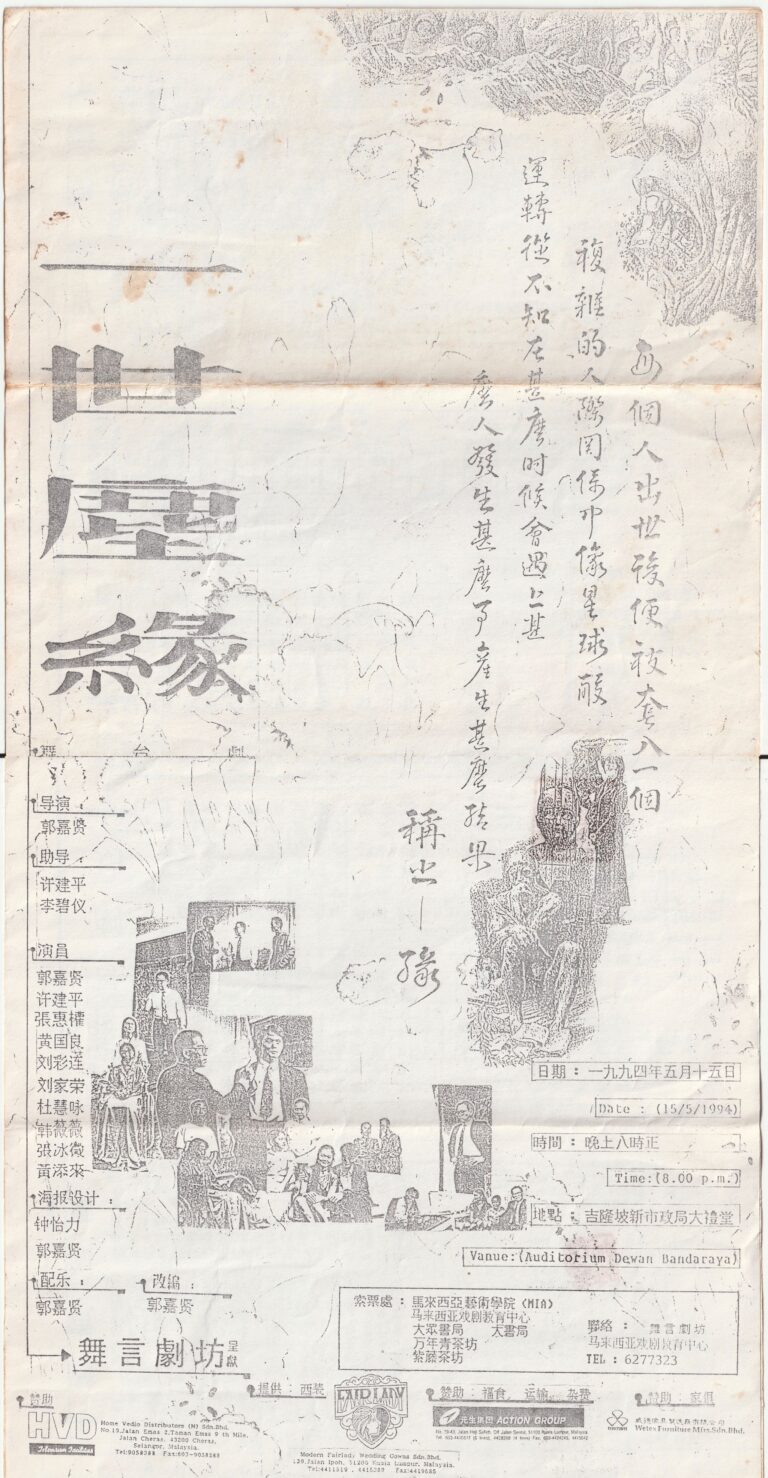 一世塵緣
舞台劇
每個人出世後便被套入一個
複雜的人際関係中像星球般
運轉從不知在甚麼时候會遇上甚
麼人發生甚麼事產生甚麼結果
稱之一緣
导演：
郭嘉贤
助导：
许建平
李碧仪
演員
郭嘉贤
许建平
張惠權
黄国良
刘彩莲
刘家荣
杜慧咏
韩薇薇
張冰薇
黃添來
海报设计：
钟怡力
郭嘉贤
配乐：
郭嘉贤
改编：
郭嘉贤
舞言劇坊 呈獻
日期：一九九四年五月十五日
Date : (15/5/1994)
時間：晚上八時正
Time:(8.00 p.m.)
地點：吉隆坡新市政局大禮堂
Vanue:(Auditorium Dewan Bandaraya)
索票處：馬來西亞藝術學院 (MIA)
马来西亚戏剧教育中心
大眾書局 大書局
万年青茶坊
紫藤茶坊
聯絡：舞言劇坊
马来西亚戏剧教育中心
TEL : 6277323
贊助
HVD
Home Vedio Distributors (M) Sdn.Bhd.
No.19,Jalan Emas 2,Taman Emas 9 th Mile,
Jalan Cheras, 43200 Cheras,
Selangor, Malaysia.
Tel:9058388 Fax:603-9058388
提供：西装
FAIR LADY
Modern Fairlady Wedding Gowns Sdn.Bhd.
139,Jalan Ipoh, 51200 Kuala Lumpur, Malaysia.
Tel:4411519 , 4415389 Fax:4419685
贊助：膳食、运输、杂费
元生集团 ACTION GROUP
贊助：家俱
Wetex Furniture Mfrs.Sdn.Bhd.